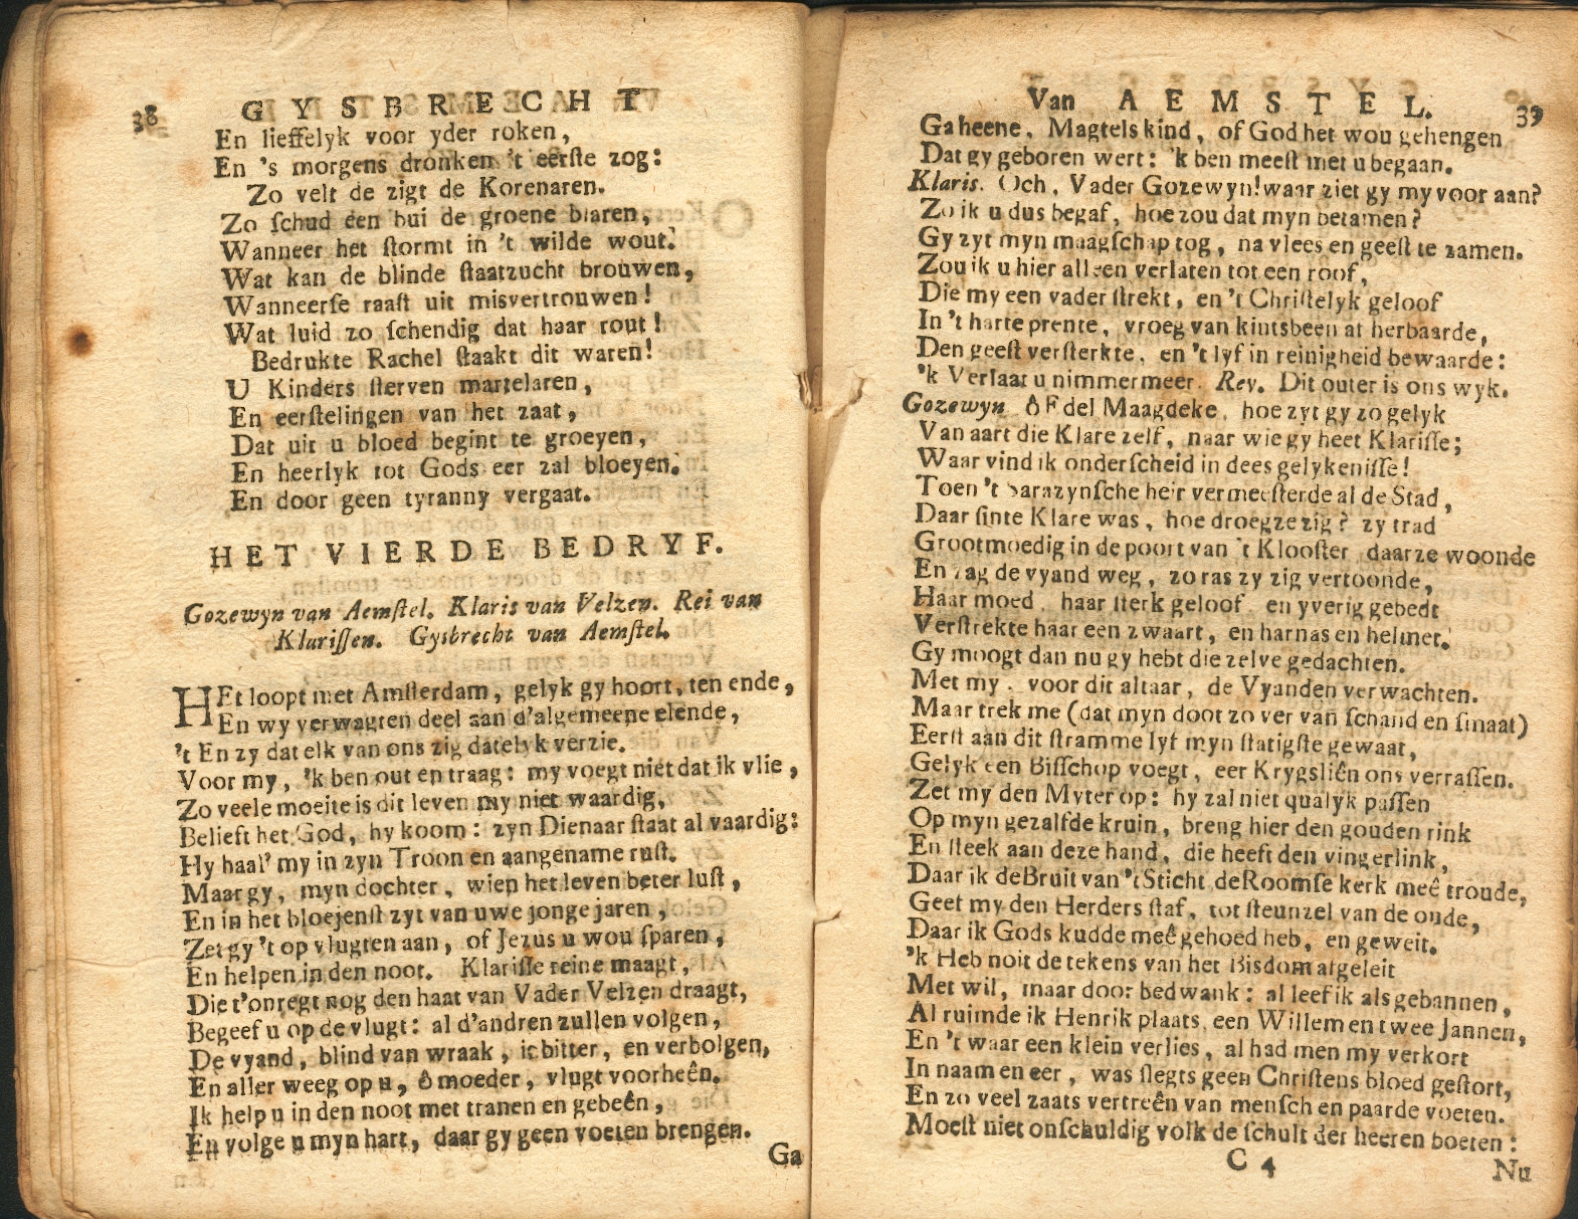 38 GYSBRECHT
En lieffelyk voor yder roken,
En 's morgens dronken 't eerſte zog:
Zo velt de zigt de Korenaren.
Zo ſchud een bui de groene blaren,
Wanneer het ſtormt in 't wilde wout.
Wat kan de blinde ſtaatzucht brouwen,
Wanneerſe raaſt uit misvertrouwen!
Wat luid zo ſchendig dat haar rout!
Bedrukte Rachel ſtaakt dit waren!
U Kinders ſterven martelaren,
En eerſtelingen van het zaat,
Dat uit u bloed begint te groeyen,
En heerlyk tot Gods eer zal bloeyen.
En door geen tyranny vergaat.
HET VIERDE BEDRYF.
Gozewyn van Aemſtel. Klaris van Velzen. Rei van
Klariſſen. Gysbrecht van Aemſtel.
HEt loopt met Amſterdam, gelyk gy hoort, ten ende,
En wy verwagten deel aan d'algemeene elende,
't En zy dat elk van ons zig datelyk verzie.
Voor my, 'k ben out en traag: my voegt niet dat ik vlie,
Zo veele moeite is dit leven my niet waardig,
Belieft het God, hy koom: zyn Dienaar ſtaat al vaardig:
Hy haal' my in zyn Troon en aangename ruſt.
Maar gy, myn dochter, wien het leven beter luſt,
En in het bloejenſt zyt van uwe jonge jaren,
Zet gy 't op vlugten aan, of Jezus u wou ſparen,
En helpen in den noot. Klariſſe reine maagt,
Die t'onregt nog den haat van Vader Velzen draagt,
Begeef u op de vlugt: al d'andren zullen volgen,
De vyand, blind van wraak, is bitter, en verbolgen,
En aller weeg op u, ô moeder, vlugt voorheên.
Ik help u in den noot met tranen en gebeên,
En volge u myn hart, daar gy geen voeten brengen.
Ga
Van AEMSTEL. 39
Ga heene, Magtels kind, of God het wou gehengen
Dat gy geboren wert: 'k ben meeſt met u begaan.
Klaris. Och, Vader Gozewyn! waar ziet gy my voor aan?
Zo ik u dus begaf, hoe zou dat myn betamen?
Gy zyt myn maagſchap tog, na vlees en geeſt te zamen.
Zou ik u hier alleen verlaten tot een roof,
Die my een vader ſtrekt, en 't Chriſtelyk geloof
In 't harte prente, vroeg van kintsbeen af herbaarde,
Den geeſt verſterkte, en 't lyf in reinigheid bewaarde:
'k Verlaat u nimmermeer. Rey. Dit outer is ons wyk.
Gozewyn ô Edel Maagdeke, hoe zyt gy zo gelyk
Van aart die Klare zelf, naar wie gy heet Klariſſe;
Waar vind ik onderſcheid in dees gelykeniſſe!
Toen 't Sarazynſche heir vermeeſterde al de Stad,
Daar ſinte Klare was, hoe droeg ze zig? zy trad
Grootmoedig in de poort van 't Klooſter daar ze woonde
En zag de vyand weg, zo ras zy zig vertoonde,
Haar moed, haar ſterk geloof, en yverig gebedt
Verſtrekte haar een zwaart, en harnas en helmet.
Gy moogt dan nu gy hebt die zelve gedachten.
Met my, voor dit altaar, de Vyanden verwachten.
Maar trek me (dat myn doot zo ver van ſchand en ſmaat)
Eerſt aan dit ſtramme lyf myn ſtatigſte gewaat,
Gelyk een Biſſchop voegt, eer Krygsliên ons verraſſen.
Zet my den Myter op: hy zal niet qualyk paſſen
Op myn gezalfde kruin, breng hier den gouden rink
En ſteek aan deze hand, die heeft den vingerlink,
Daar ik de Bruit van 't Sticht de Roomſe kerk meê troude,
Geef my den Herders ſtaf, tot ſteunzel van de oude,
Daar ik Gods kudde meê gehoed heb, en geweit.
'k Heb noit de tekens van het Bisdom afgeleit
Met wil, maar door bedwank: al leef ik als gebannen,
Al ruimde ik Henrik plaats, een Willem en twee Jannen,
En 't waar een klein verlies, al had men my verkort
In naam en eer, was ſlegts geen Chriſtens bloed geſtort,
En zo veel zaats vertreên van menſch en paarde voeten.
Moeſt niet onſchuldig volk de ſchult der heeren boeten:
C 4
Nu